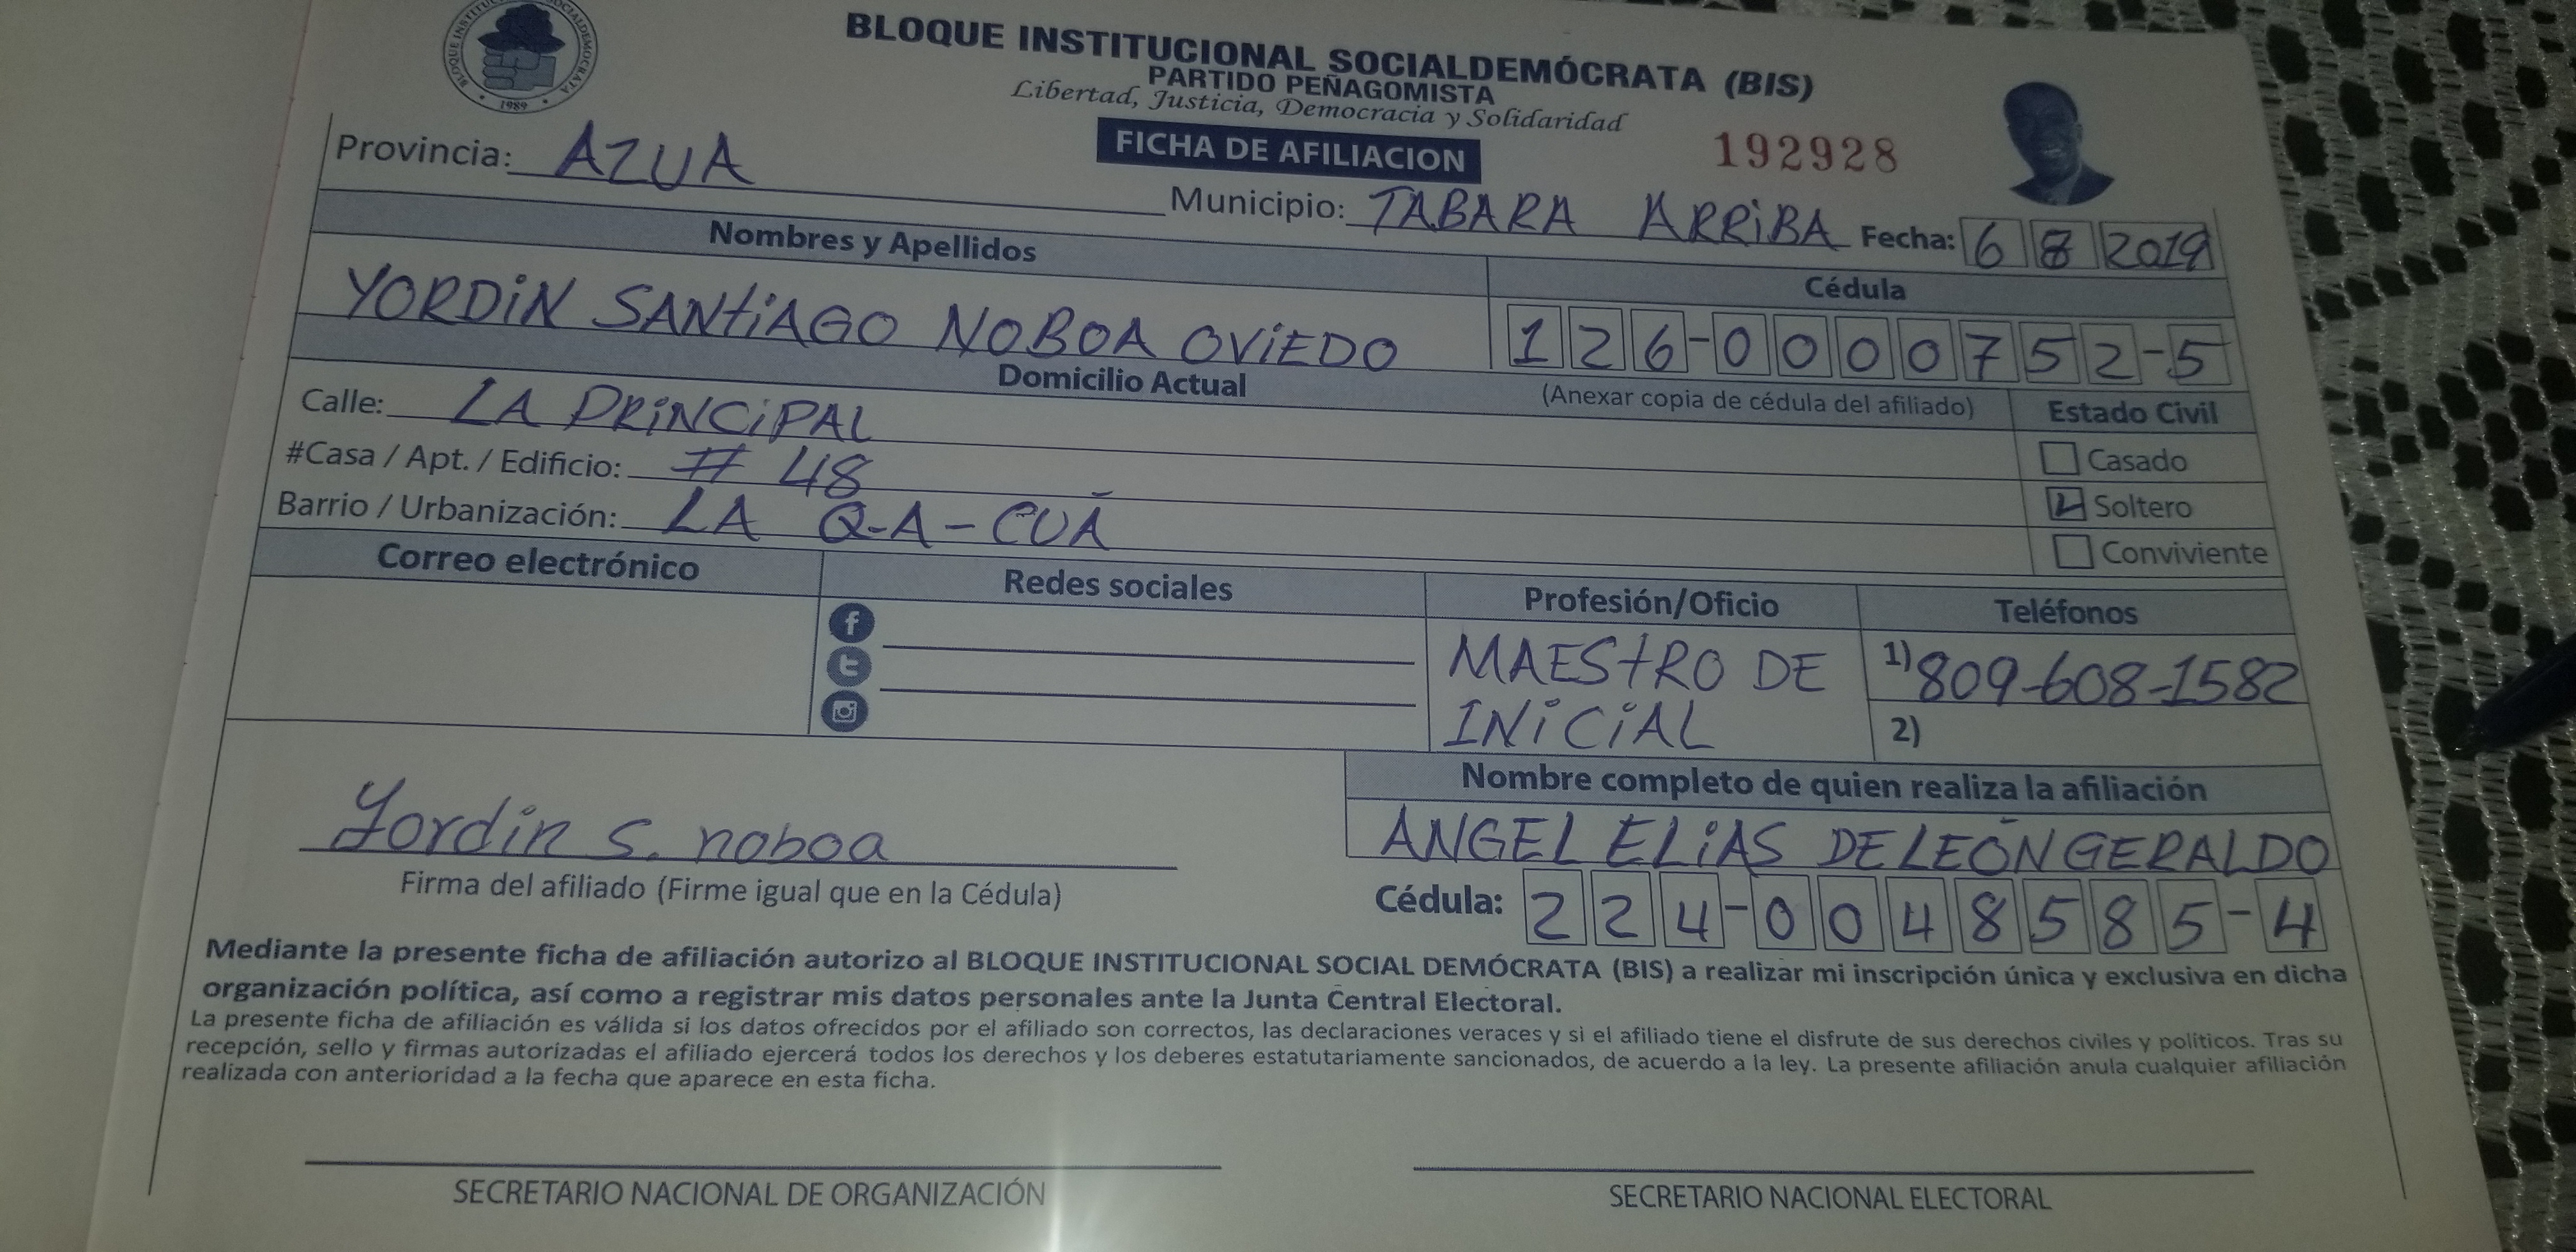 BLOQUE INSTITUCIONAL SOCIALDEMÓCRATA
1989
BLOQUE INSTITUCIONAL SOCIALDEMÓCRATA (BIS)
PARTIDO PEÑAGOMISTA
Libertad, Justicia, Democracia y Solidaridad
FICHA DE AFILIACION
192928
Provincia: AZUA
Municipio: TABARA ARRIBA Fecha: 6 8 2019
Nombres y Apellidos
Cédula
YORDIN SANTIAGO NOBOA OVIEDO
126-0000752-5
Domicilio Actual
(Anexar copia de cédula del afiliado)
Estado Civil
Calle: LA PRINCIPAL
Casado
#Casa / Apt. / Edificio: # 48
Soltero
Barrio / Urbanización: LA Q-A-CUÁ
Conviviente
Correo electrónico
Redes sociales
Profesión/Oficio
Teléfonos
MAESTRO DE
INICIAL
1) 809-608-1582
2)
Nombre completo de quien realiza la afiliación
ANGEL ELIAS DE LEÓN GERALDO
Yordin S. noboa
Firma del afiliado (Firme igual que en la Cédula)
Cédula: 224-0048585-4
Mediante la presente ficha de afiliación autorizo al BLOQUE INSTITUCIONAL SOCIAL DEMÓCRATA (BIS) a realizar mi inscripción única y exclusiva en dicha
organización política, así como a registrar mis datos personales ante la Junta Central Electoral.
La presente ficha de afiliación es válida si los datos ofrecidos por el afiliado son correctos, las declaraciones veraces y si el afiliado tiene el disfrute de sus derechos civiles y políticos. Tras su
recepción, sello y firmas autorizadas el afiliado ejercerá todos los derechos y los deberes estatutariamente sancionados, de acuerdo a la ley. La presente afiliación anula cualquier afiliación
realizada con anterioridad a la fecha que aparece en esta ficha.
SECRETARIO NACIONAL DE ORGANIZACIÓN
SECRETARIO NACIONAL ELECTORAL